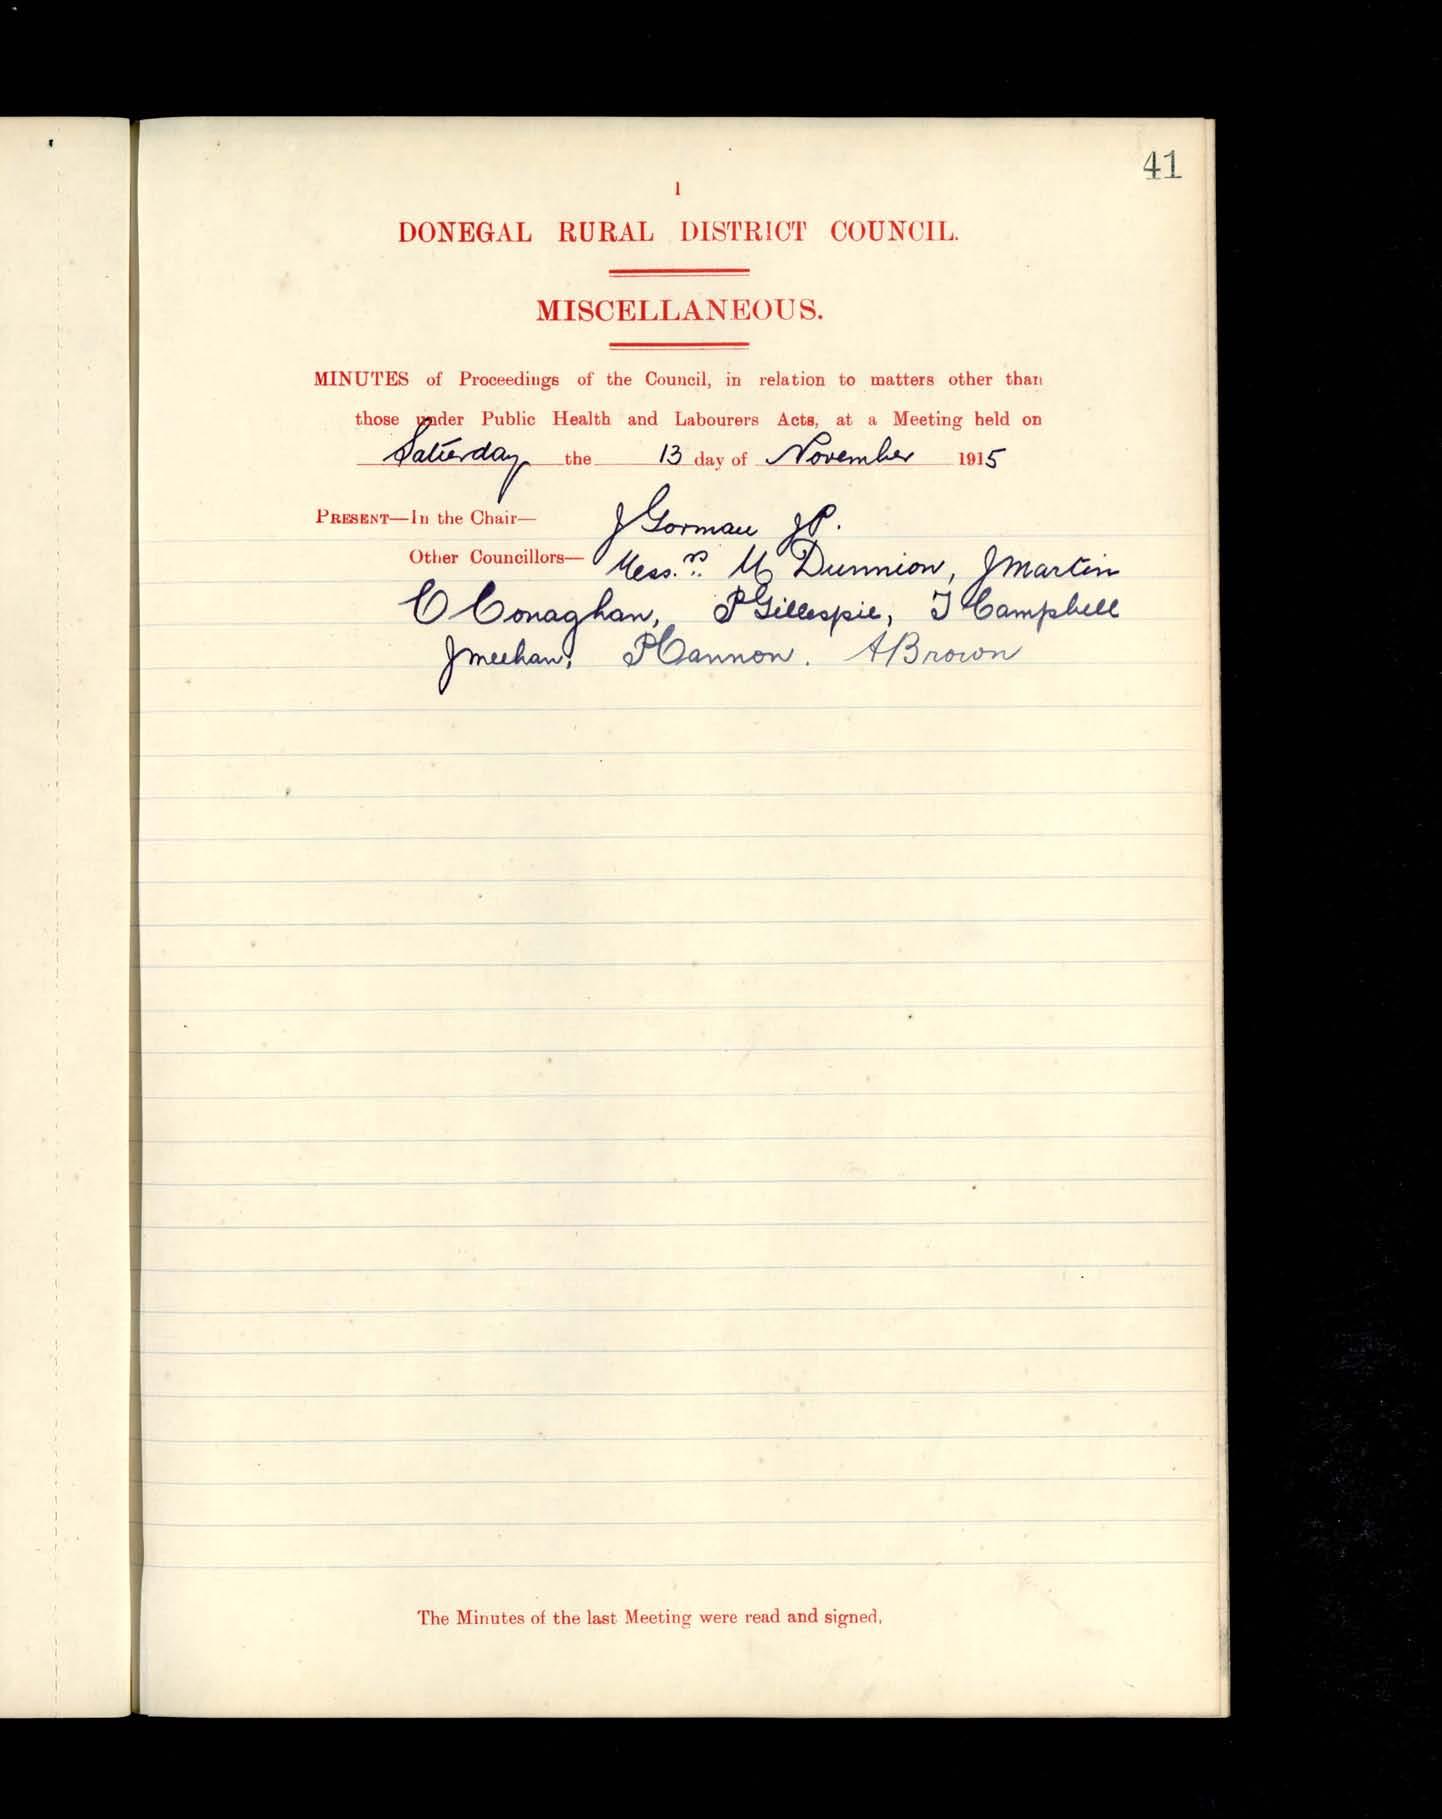 41
1
DONEGAL RURAL DISTRICT COUNCIL.
MISCELLANEOUS.
MINUTES of Proceedings of the Council, in relation to matters other than
those under Public Health and Labourers Acts, at a Meeting held on
Saturday the 13 day of November 1915
PRESENT—In the Chair— J Gorman JP.
Other Councillors— Mess.rs M Dunnion, J Martin
C Conaghan, P Gillespie, T Campbell
J Meehan, P Cannon. A Brown
The Minutes of the last Meeting were read and signed.